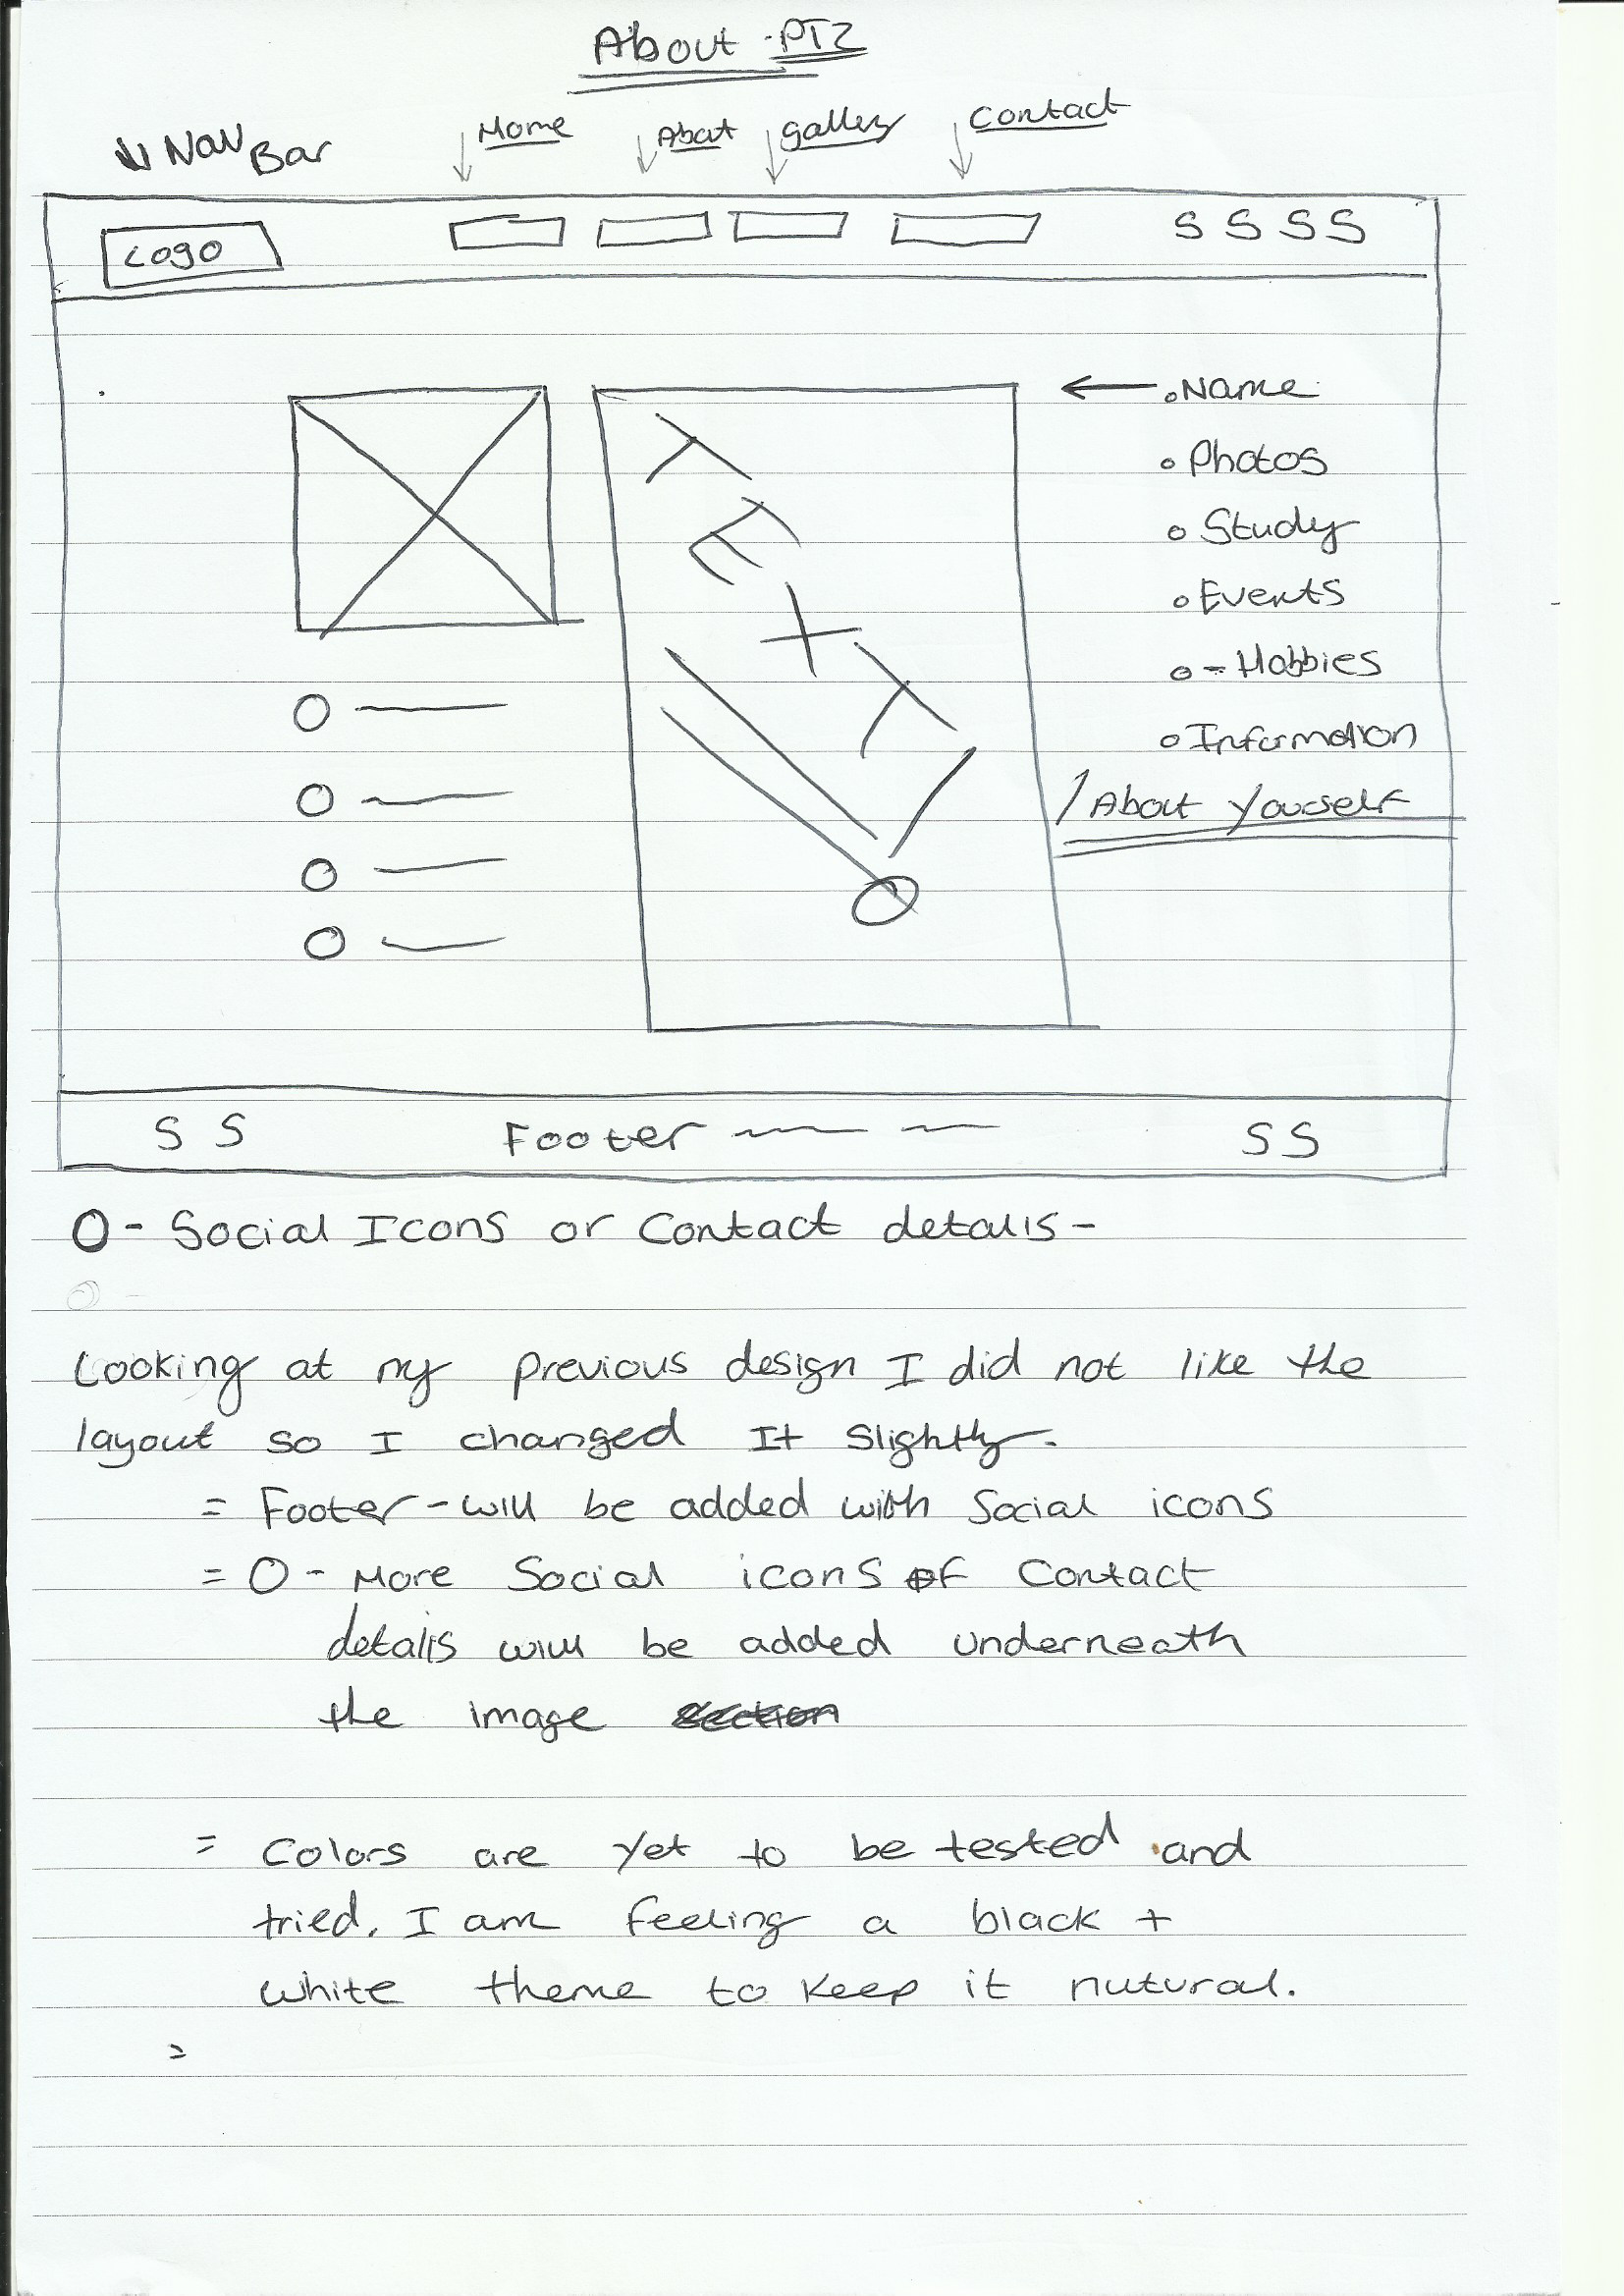 About - PT2
Home About Gallery Contact
Nav Bar
Logo
S S S S
TEXT
Name
Photos
Study
Events
- Hobbies
Information
/ About Yourself
S S Footer S S
O - Social Icons or Contact details -
Looking at my previous design I did not like the
layout so I changed It Slightly.
= Footer - will be added with Social icons
= O - More Social icons of Contact
details will be added underneath
the image section
= Colors are yet to be tested and
tried. I am feeling a black +
white theme to keep it nutural.
=